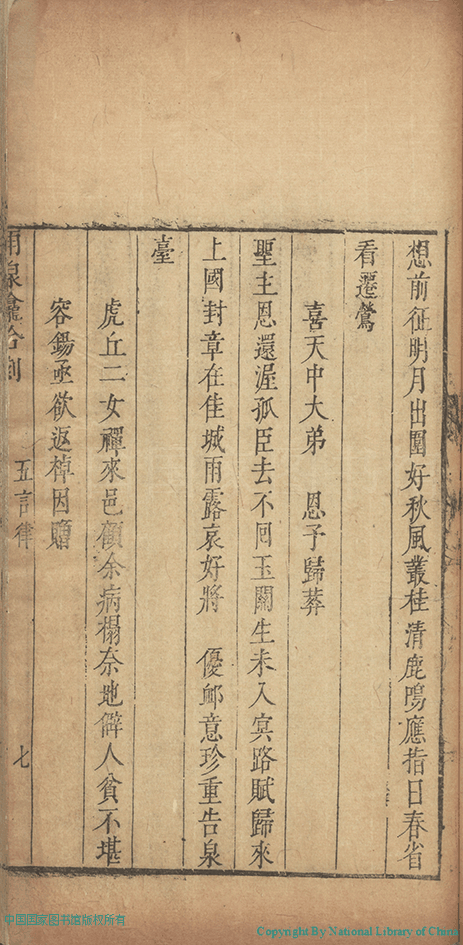 想前征明月出圍好秋風叢桂清鹿鳴應指日春省
看遷鶯
喜天中大弟　恩予歸葬
聖主恩還渥孤臣去不回玉關生未入冥路賦歸來
上國封章在佳城雨露哀好將　優䘏意珍重告泉
臺
虎丘二女禪來邑顧余病榻奈地僻人貧不堪
容錫亟欲返棹因贈
合刻
五言律
七
中国国家图书馆版权所有
Copyright By National Library of China